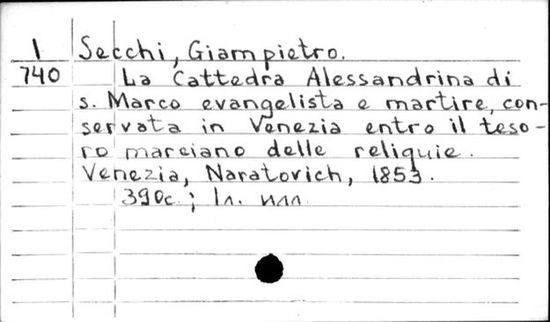 1 Secchi, Giampietro.
740 La Cattedra Alessandrina di
s. Marco evangelista e martire, con-
servata in Venezia entro il teso-
ro marciano delle reliquie.
Venezia, Naratovich, 1853.
390c.;